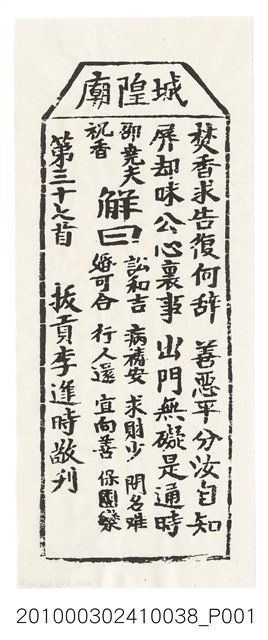 城隍廟
焚香求告復何辞　善惡平分汝自知
屏却昧公心裏事　出門無礙是通時
邵堯夫祝香
解曰
訟和吉　病禱安　求財少　問名难
婚可合　行人還　宜向善　保團欒
第三十七首　拔貢李進時敬刋
201000302410038_P001